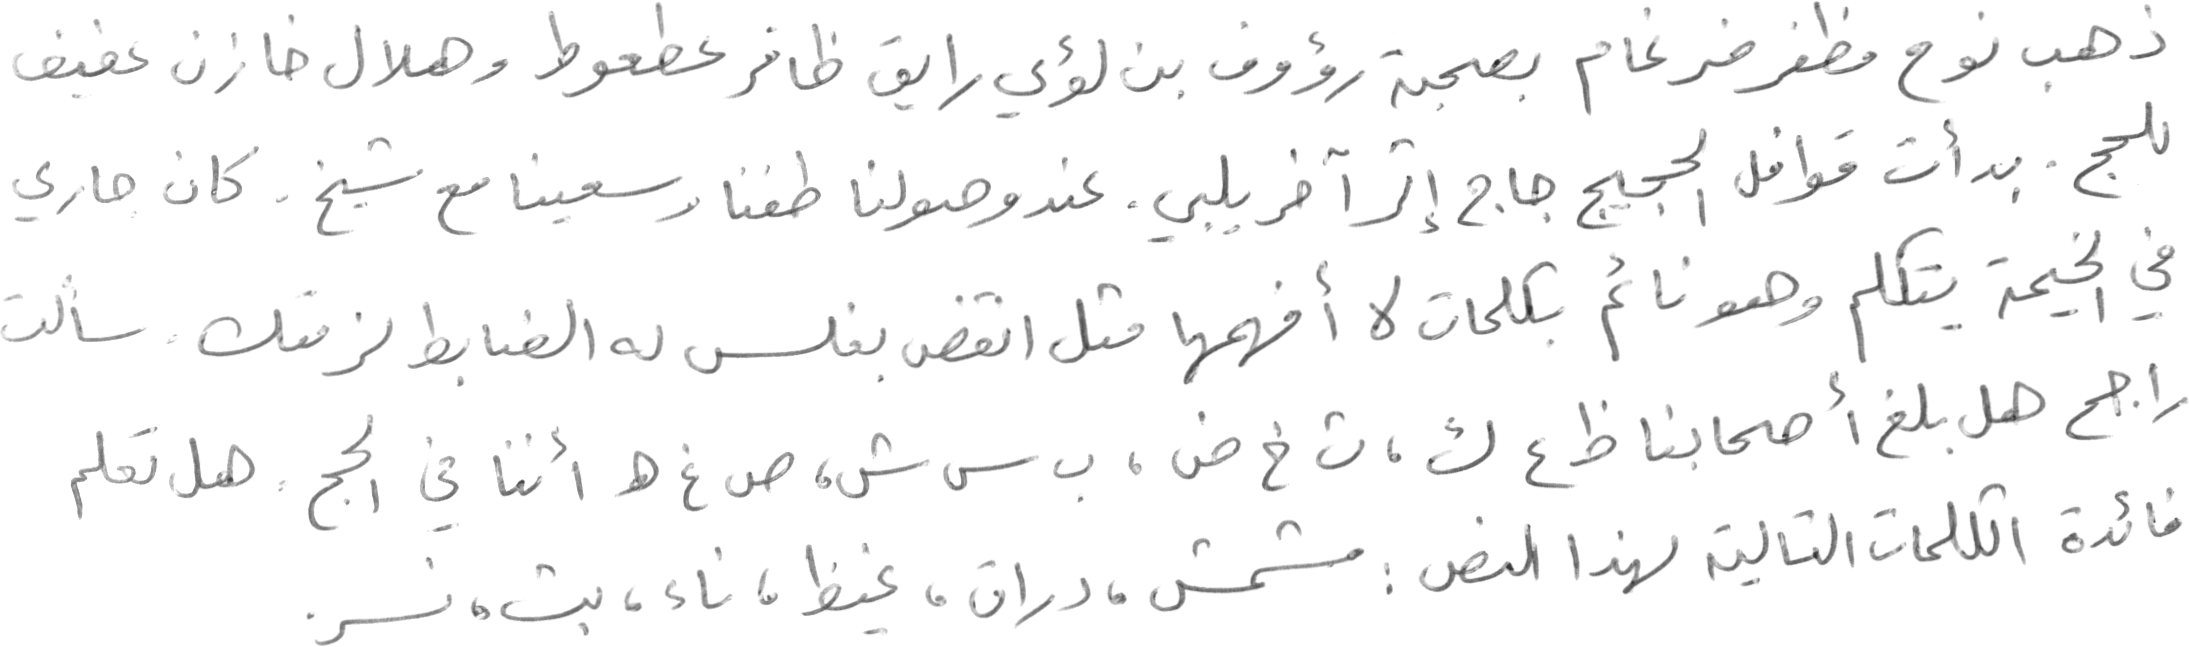 ذهب نوح مظفر ضرغام بصحبة رؤوف بن لؤي رايق ظافر عطعوط وهلال خازن عفيف
للحج. بدأت قوافل الحجيج جاج إثر آخر يلبي. عند وصولنا طفنا وسعينا مع شيخ. كان جاري
في الخيمة يتكلم وهو نائم بكلمات لا أفهمها مثل انقض بغلس له الضابط لزمتك. سألت
راجح هل بلغ أصحابنا ظ ع ك، ث خ ض، ب س ش، ص غ ه أننا في الحج. هل تعلم
فائدة الكلمات التالية لهذا النص: مشمش، دراق، غيظ، ناء، بث، نسر.